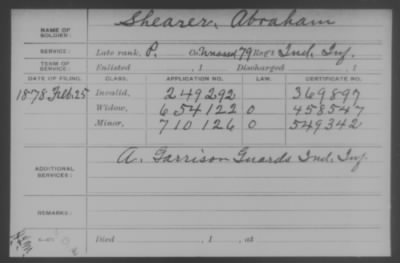 NAME OF SOLDIER: Shearer, Abraham
SERVICE: Late rank, P. Co. Unassd 79 Reg't Ind. Inf.
TERM OF SERVICE: Enlisted , 1 Discharged , 1
DATE OF FILING. CLASS. APPLICATION NO. LAW. CERTIFICATE NO.
1878 Feb. 25 Invalid, 249292 369897
Widow, 654122 0 458547
Minor, 710126 0 549342
ADDITIONAL SERVICES: A. Garrison Guards Ind. Inf.
REMARKS:
Died , 1 , at